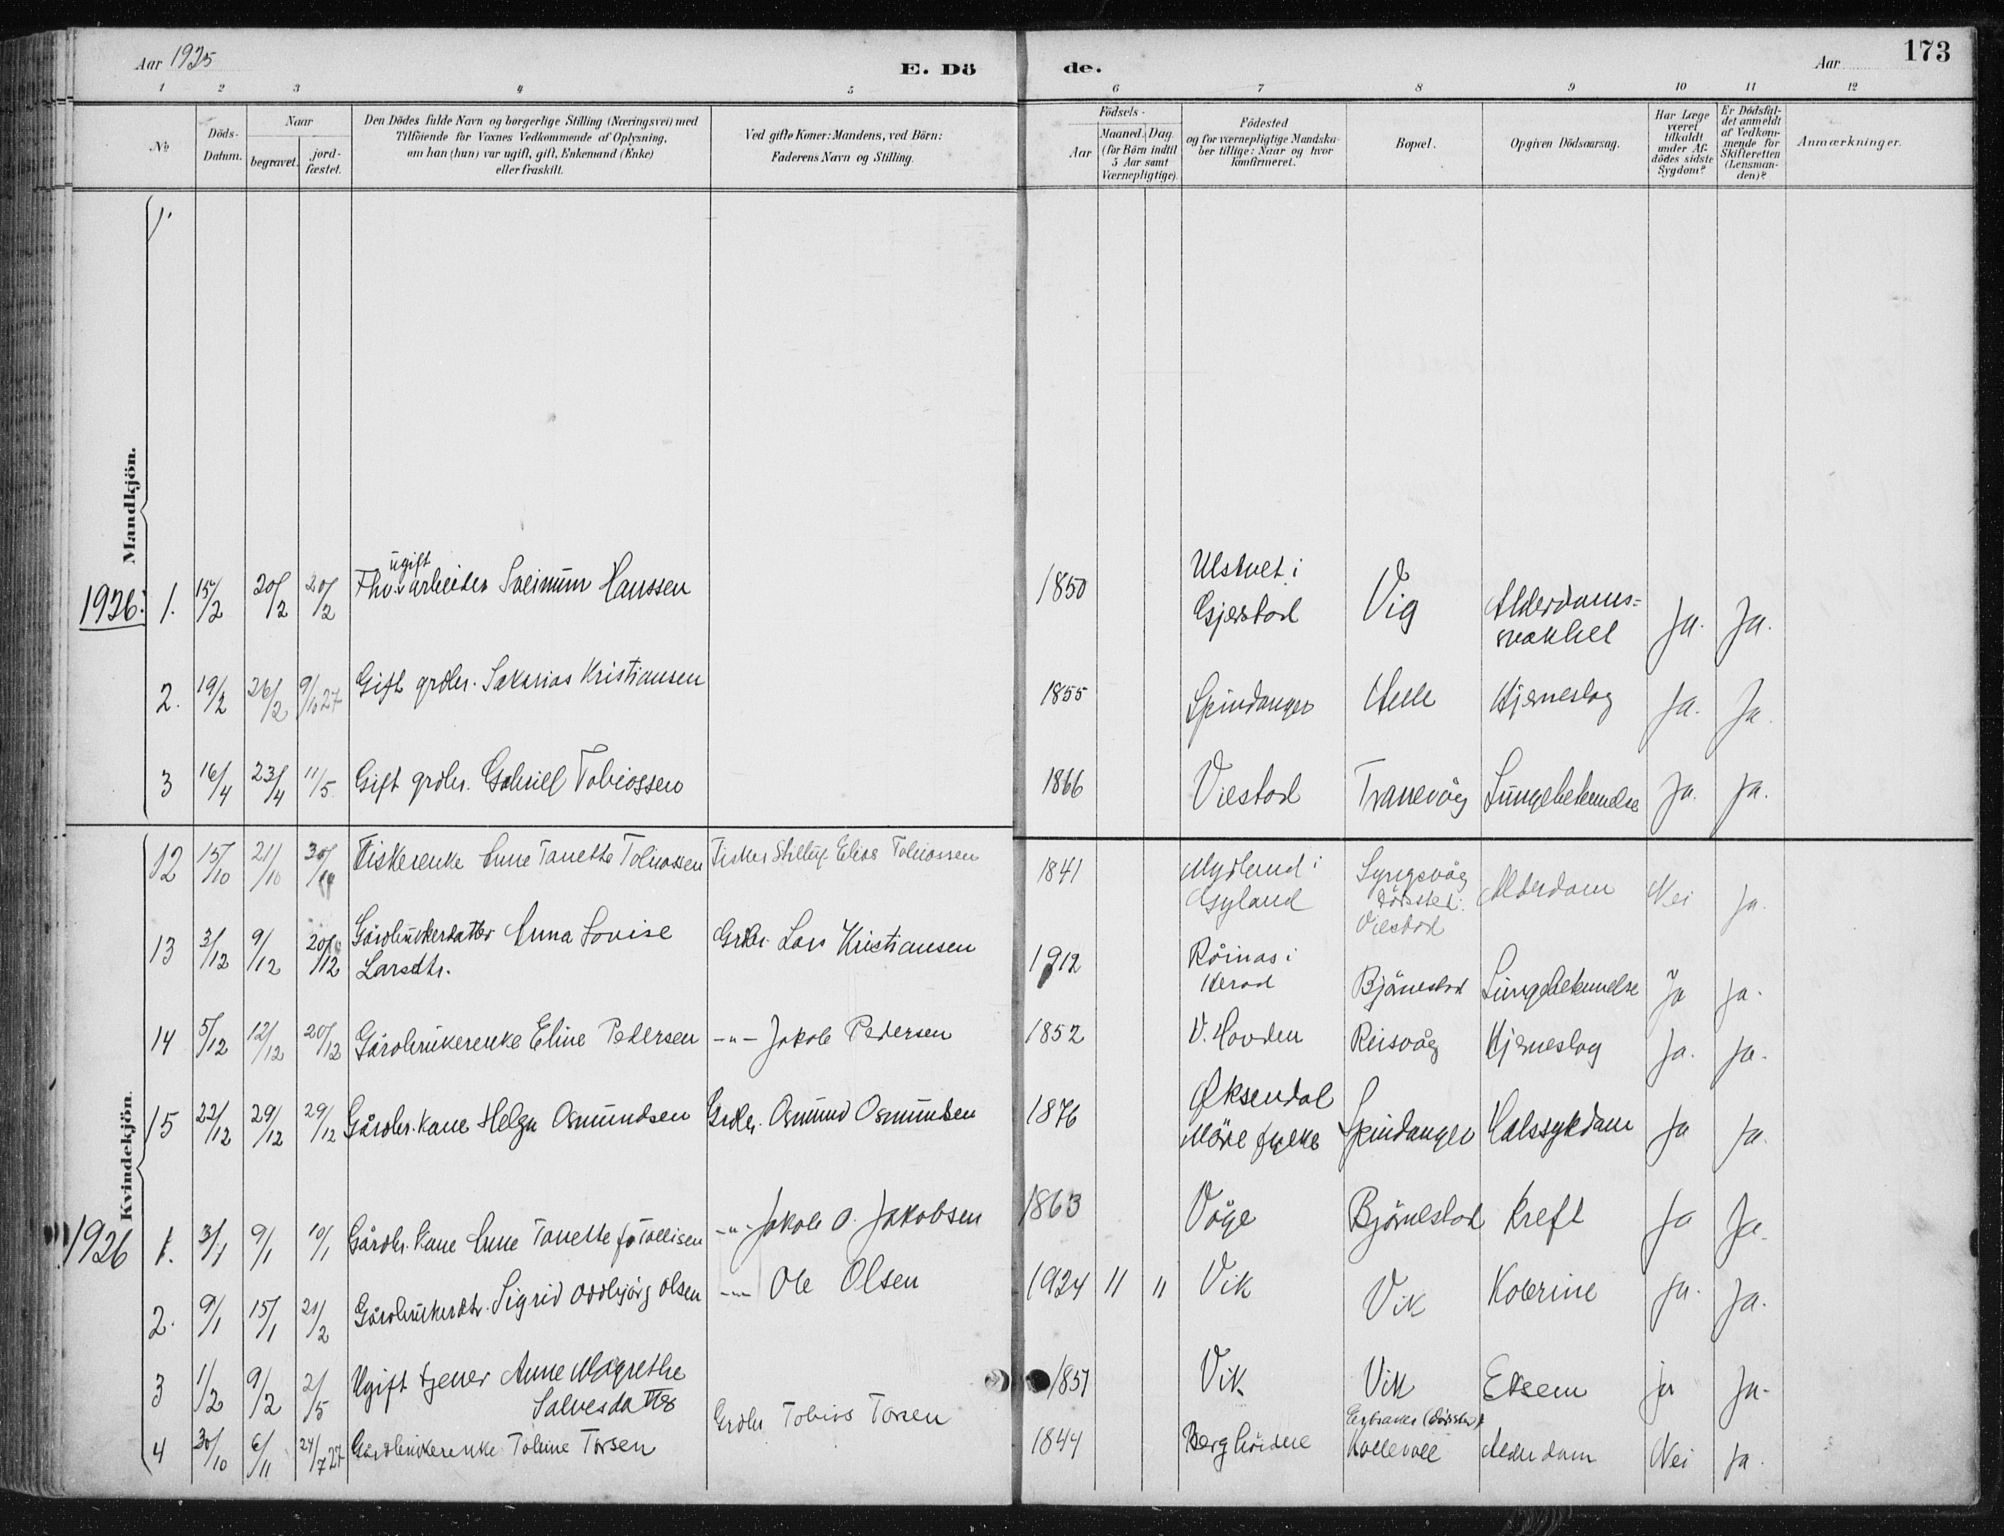 Aar 1925
E. Dö
de.
Aar
173
1 2 3 4 5 6 7 8 9 10 11 12
No
Döds-Datum.
Naar
begravet.
jord-fæstet.
Den Dödes fulde Navn og borgerlige Stilling (Næringsvei) med
Tilföiende for Voxnes Vedkommende af Oplysning,
om han (hun) var ugift, gift, Enkemand (Enke)
eller fraskilt.
Ved gifte Koner: Mandens, ved Börn:
Faderens Navn og Stilling.
Födsels-
Aar
Maaned. Dag.
(for Börn indtil
5 Aar samt
Værnepligtige).
Födested
og for værnepligtige Mandska-
ber tillige: Naar og hvor
konfirmeret.
Bopæl.
Opgiven Dödsaarsag.
Har Læge
været
tilkaldt
under Af-
dödes sidste
Sygdom?
Er Dödsfal-
det anmeldt
af Vedkom-
mende for
Skifteretten
(Lensman-
den)?
Anmærkninger.
Mandkjön.
1926: 1. 15/2 20/2 20/2 Fhv. ugift arbeider Sveinum Hanssen 1850 Ulstvet i Gjerstad Vig Alderdoms-svakhet Ja. Ja.
2. 19/2 26/2 9/10 27 Gift grdbr. Sakarias Kristiansen 1855 Spindanger Helle Hjerneslag Ja. Ja.
3 16/4 23/4 11/5 Gift grdbr. Gabriel Tobiassen 1866 Viestad Tranevåg Lungebetendelse Ja. Ja.
Kvindekjön.
12 15/10 21/10 30/ Fiskerenke Anne Tanette Tobiassen Fisker Elias Tobiassen 1841 Mydland i Gyland Lyngsvåg Dödssted: Viestad Alderdom Nei Ja.
13 3/12 9/12 20/12 Gårdbrukerdatter Anna Lovise Larsdtr. Grdbr. Lars Kristiansen 1912 Röinas i Herad Bjørnestad Lungebetendelse Ja Ja.
14 5/12 12/12 20/12 Gårdbrukerenke Eline Pedersen -"- Jakob Pedersen 1852 V. Hovden Reisvåg Hjerneslag Ja. Ja.
15 22/12 29/12 29/12 Gårdbr. kone Helga Osmundsen Grdbr. Osmund Osmundsen 1876 Øksendal Möre fylke Spindanger Halssykdom Ja Ja.
1926 1. 3/1 9/1 10/1 Gårdbr. kone Anne Tanette f. Tallisen -"- Jakob O. Jakobsen 1863 Våge Bjørnestad Kreft Ja Ja.
2. 9/1 15/1 21/2 Gårdbrukerdtr. Sigrid Oddbjörg Olsen -"- Ole Olsen 1924 11 11 Vik Vik Kolerine Ja. Ja.
3 1/2 9/2 2/5 Ugift tjener Anne Magrethe Salvesdatter 1851 Vik Vik Eksem ja Ja.
4 30/10 6/11 24/7 27 Gardbrukerenke Tobine Torsen Grdbr Tobias Torsen 1844 Kollevoll Alderdom Nei Ja.